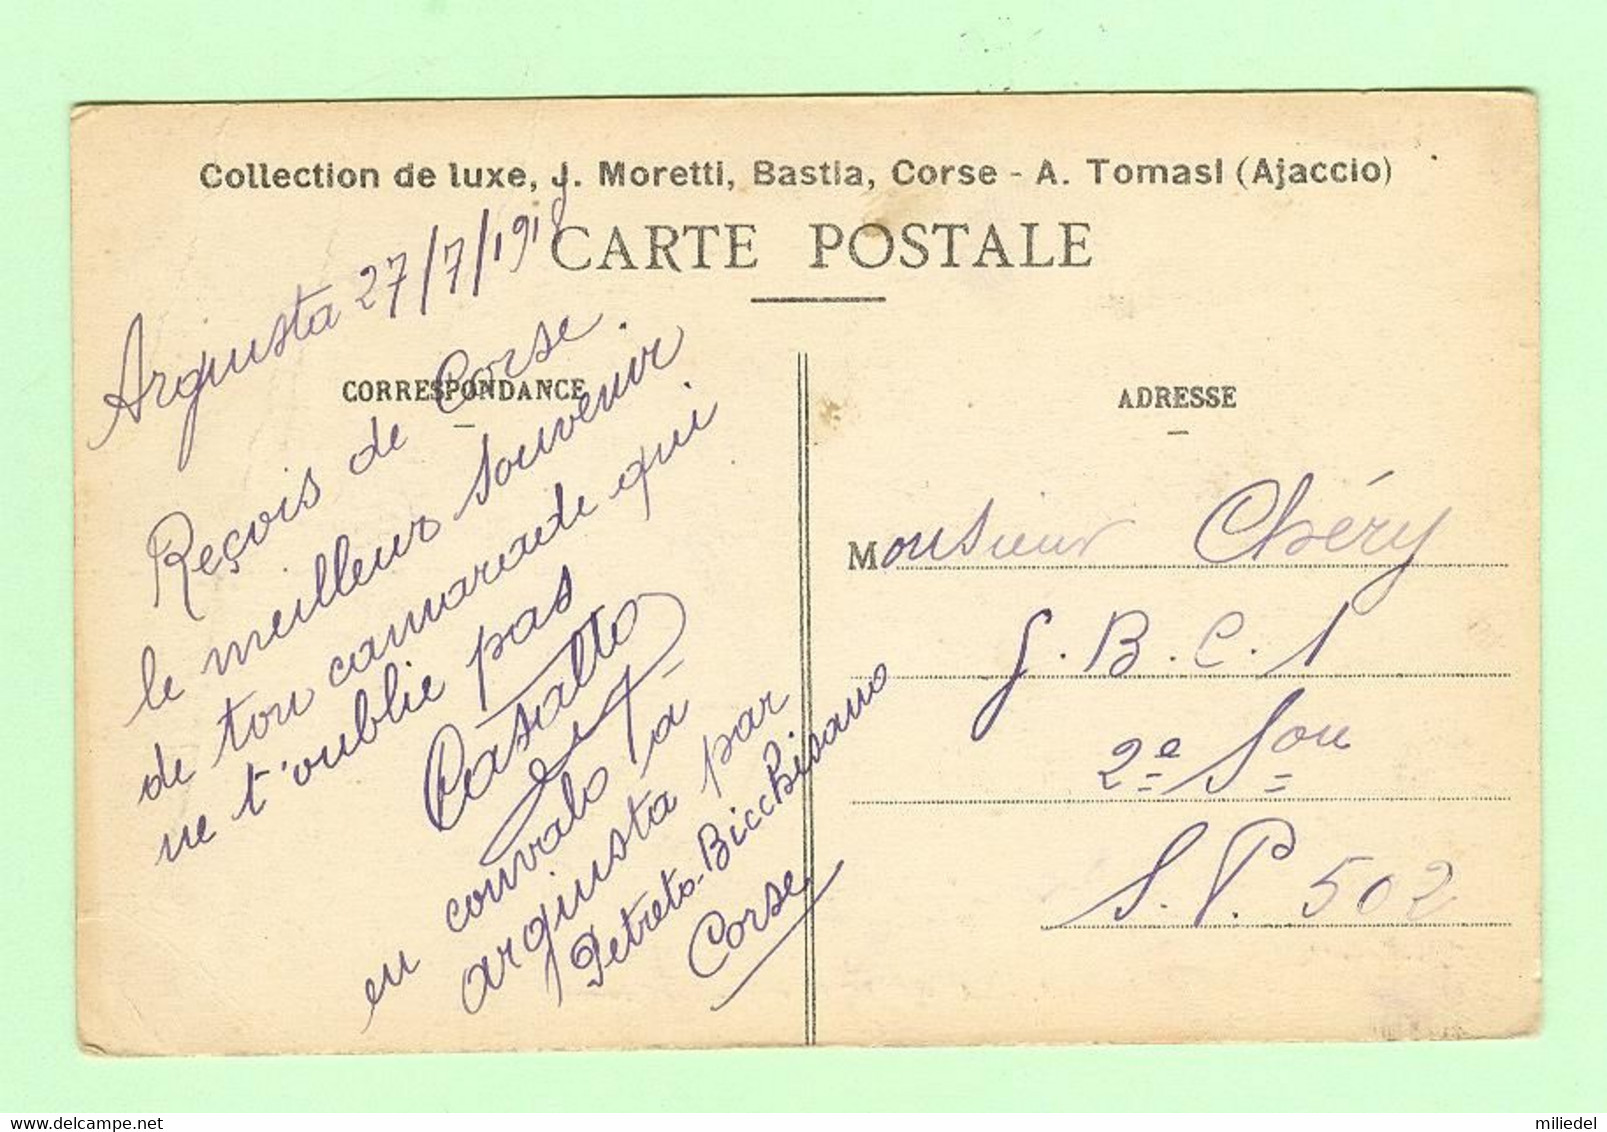 Collection de luxe, J. Moretti, Bastia, Corse - A. Tomasi (Ajaccio)
CARTE POSTALE
Argiusta 27/7/1918
CORRESPONDANCE
Reçois de Corse
le meilleur souvenir
de ton camarade qui
ne t'oublie pas
Casalta
en convalo a
argiusta par
Petreto-Bicchisano
Corse
ADRESSE
Monsieur Chéry
G.B.C.1
2e Son
S.P. 502
miliedel